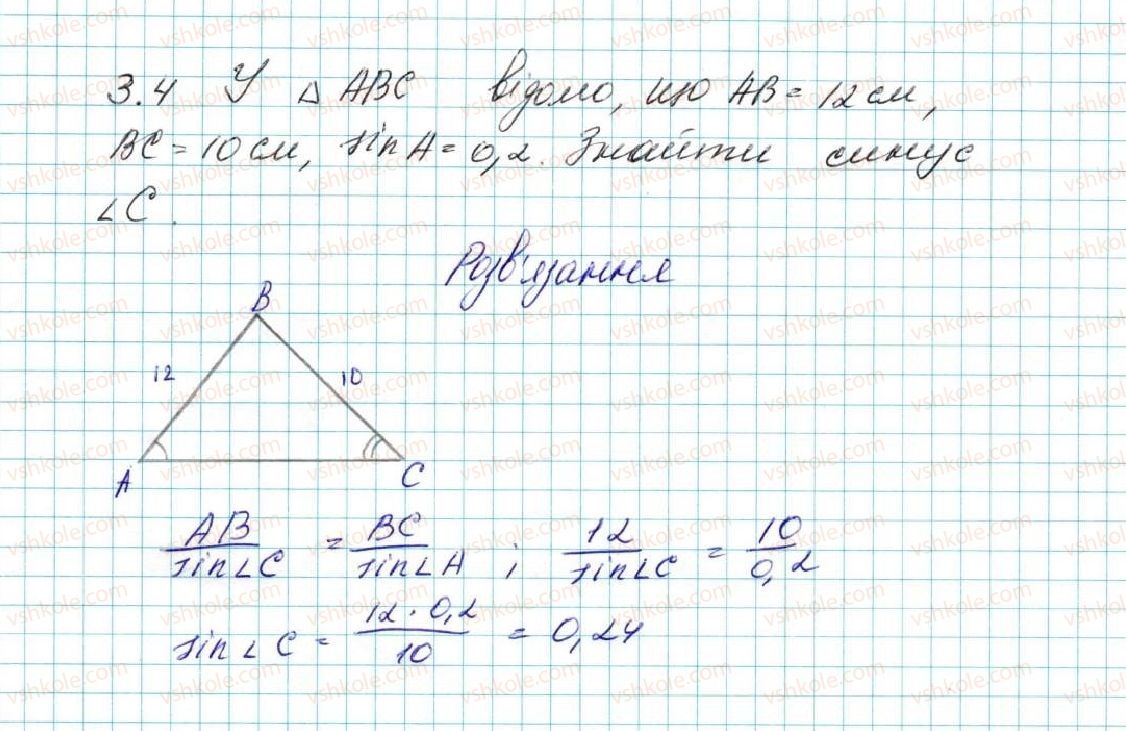 3.4 У △ ABC відомо, що AB = 12 см,
BC = 10 см, sin A = 0,2. Знайти синус
∠C.
Розв'язання
B
12
10
A
C
AB/sin∠C = BC/sin∠A ; 12/sin∠C = 10/0,2
sin∠C = 12·0,2/10 = 0,24
vshkole.com